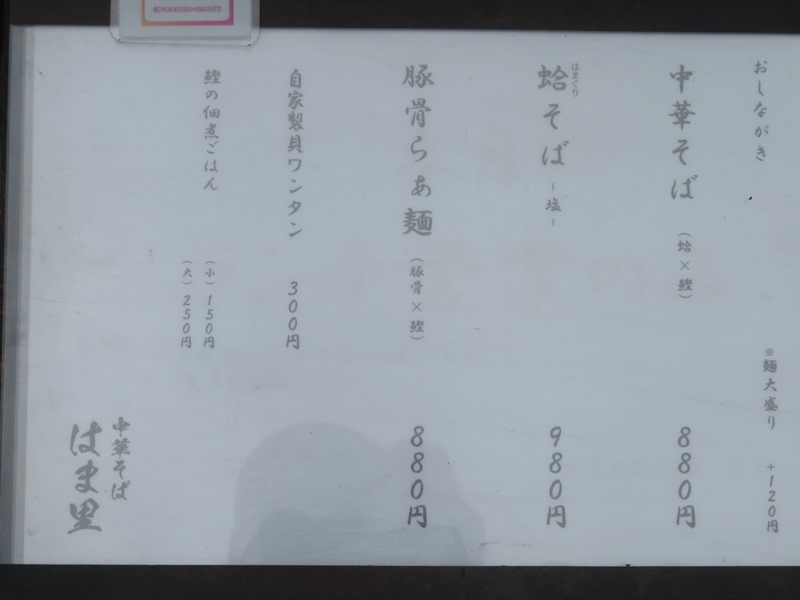 @CHUKASOBAHAMASATO
おしながき
※麺大盛り +120円
中華そば (蛤×鰹) 880円
はまぐり
蛤そば -塩- 980円
豚骨らぁ麺 (豚骨×鰹) 880円
自家製貝ワンタン 300円
鰹の佃煮ごはん (小)150円
(大)250円
中華そば
はま里